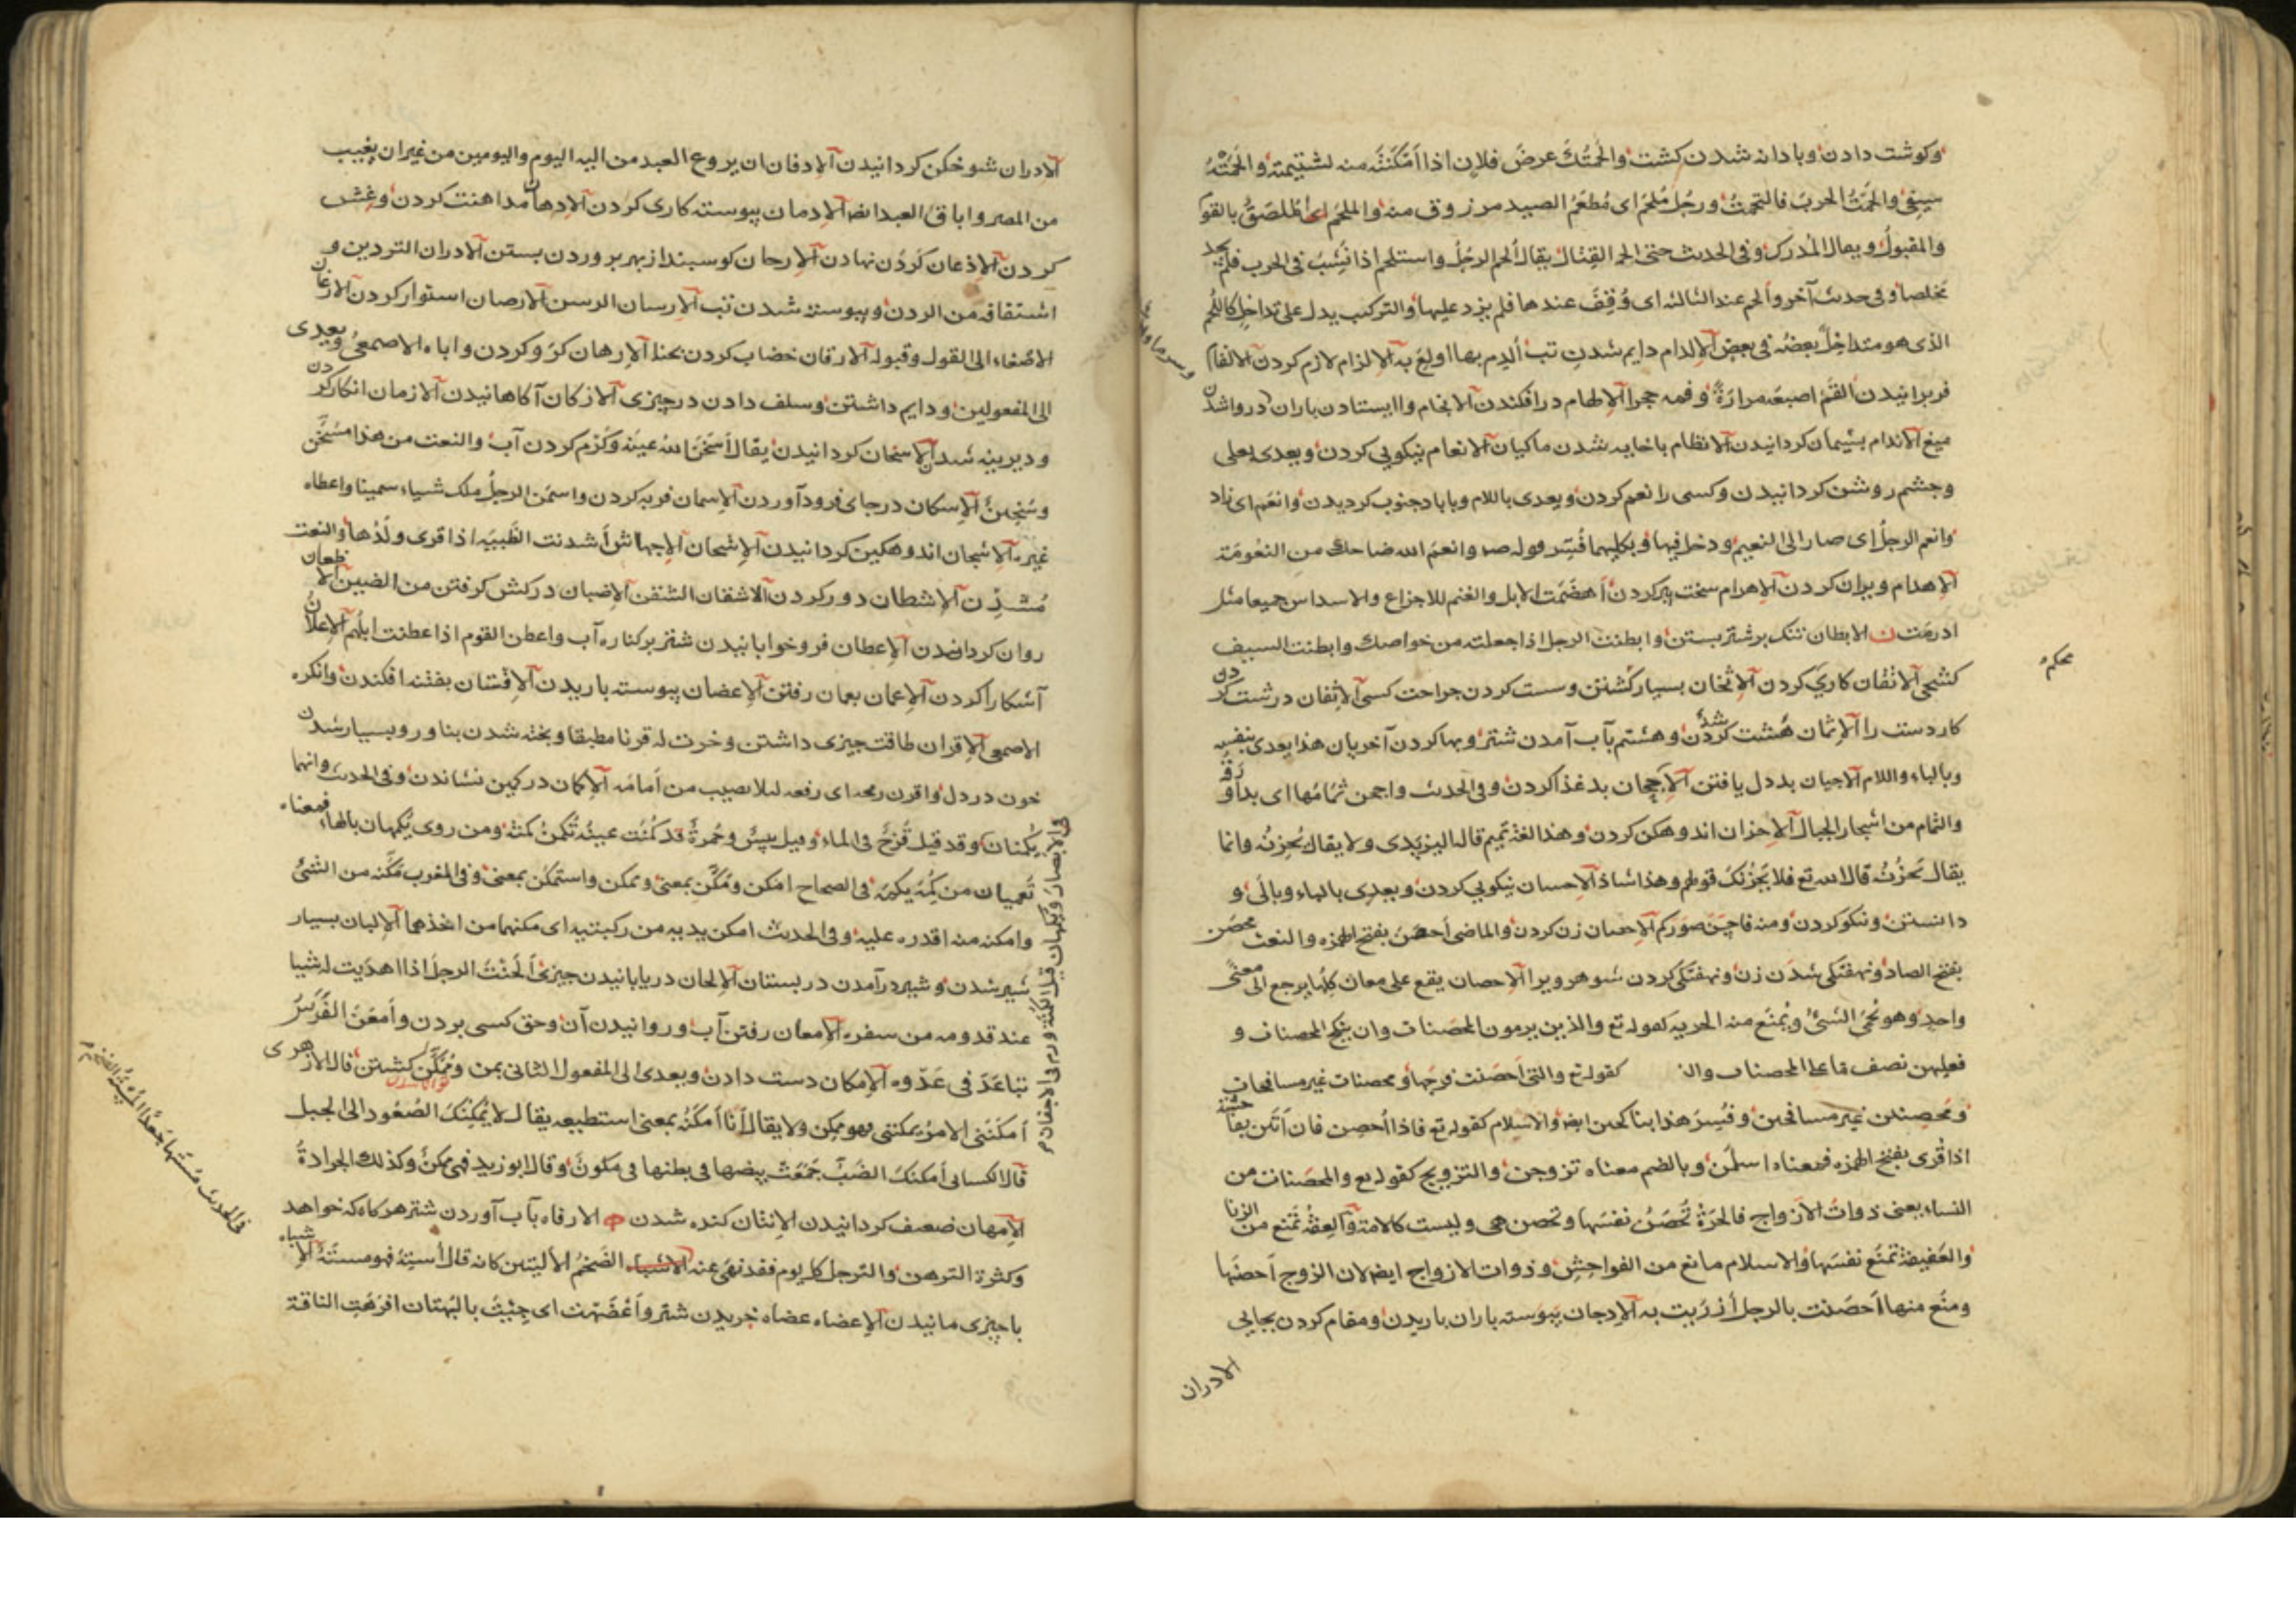 وكوشت دادن وبا دانه شدن كشت والحمتك عرض فلان اذا امكنته منه لشتيمته والحمته
سيفى والحمت الحرب فالتحمت ورجل ملحم اى مطعم الصيد مرزوق منه والملحم ايضا الملصق بالقوم
والمقبول ويقال المدرك وفى الحديث حتى الحم القتال يقال الحم الرجل واستلحم اذا نشب فى الحرب فلم يجد
مخلصا وفى حديث آخر والحم عند الثالثه اى وقف عندها فلم يزد عليها والتركيب يدل على تداخل كاللحم
الذى هو متداخل بعضه فى بعض الالدام دايم شدن تب الدم بها اولع به الالزام لازم كردن الالقام
فربرانيدن القم اصبعه مرارة وفمه حجرا الالهام در افكندن الانجام وا ايستادن باران در واشدن
ميغ الاندام پشيمان كردانيدن الانظام با خايه شدن ماكيان الانعام نيكويى كردن ويعدى بعلى
وچشم روشن كردانيدن وكسى را نعم كردن ويعدى باللام وبا باد جنوب كرديدن وانعم اى زاد
وانعم الرجل اى صار الى النعيم ودخل فيها وبكليهما فسر قوله صم وانعم الله صباحك من النعومة
الاهدام ويران كردن الاهرام سخت پير كردن اهضمت الابل والغنم للاجزاع والاسداس جميعا مثل
ادرمت ن الابطان تنك بر شتر بستن وابطنت الرجل اذا جعلته من خواصك وابطنت السيف
كشحى الاتقان كارى كردن الاثخان بسيار كشتن وسست كردن جراحت كسى الاثفان درشت كردن
كار دست را الاثمان هشت شدن وهشتم بآب آمدن شتر وبها كردن آخريان هذا يعدى بنفسه
وبالباء واللام الاجبان بد دل يافتن الاجحان بد غذا كردن وفى الحديث واجحن ثمامها اى بدا ورقه
والثمام من اشجار الجبال الاحزان اندوهكن كردن وهذا لغة تميم قال اليزيدى ولا يقال يحزنه وانما
يقال يحزن قال الله تع فلا يحزنك قولهم وهذا شاذ الاحسان نيكويى كردن ويعدى بالباء وبالى و
دانستن ونيكو كردن ومنه فاحسن صوركم الاحصان زن كردن والماضى احصن بفتح الهمزه والنعت محصن
بفتح الصاد ونهفتكى شدن زن ونهفتكى كردن شوهر ويرا الاحصان يقع على معان كلها يرجع الى معنى
واحد وهو نحمى الشىء ويمنع منه الحريه كقوله تع والذين يرمون المحصنات وان ينكح المحصنات و
فعليهن نصف ما على المحصنات كقوله تع والتى احصنت فرجها ومحصنات غير مسافحات
ومحصنين غير مسافحين وفسر هذا بناكحين ايضا والاسلام كقوله تع فاذا احصن فان اتين بفاحشة
اذا قرى بفتح الهمزه فمعناه اسلمن وبالضم معناه تزوجن والتزويج كقوله تع والمحصنات من
النساء يعنى ذوات الازواج فالحرة تحصن نفسها وتحصن هى وليست كالامة والعفة تمنع من الزنا
والعفيفة تمنع نفسها والاسلام مانع من الفواحش وذوات الازواج ايضا لان الزوج احصنها
ومنع منها احصنت بالرجل ازريت به الادجان پيوسته باران باريدن ومقام كردن بجايى
الادران
محكم
الادران شوخكن كردانيدن الادفان ان يروع العبد من اليه اليوم واليومين من غير ان يغيب
من المصر واباق العبد ايضا الادمان پيوسته كارى كردن الادهان مداهنت كردن وغش
كردن الاذعان كردن نهادن الارجان كوسبند از بهر پروردن بستن الادران التردين و
اشتقاقه من الردن وپيوسته شدن تب الارسان الرسن الارصان استوار كردن الارعان
الاصغاء الى القول وقبوله الارقان خضاب كردن بحنا الارهان كرو كردن واباه الاصمعى ويعدى
الى المفعولين ودايم داشتن وسلف دادن در چيزى الازكان آكاهانيدن الازمان انكار كردن
وديرينه شدن الاسخان كردانيدن يقال اسخن الله عينه وكرم كردن آب والنعت من هذا مسخن
وسخين الاسكان در جاى فرود آوردن الاسمان فربه كردن واسمن الرجل ملك شياء سمينا واعطاه
غيره الاشجان اندوهكين كردانيدن الاشحان الاجهاش اشدنت الظبيه اذا قوى ولدها والنعت
مشدن الاشطان دور كردن الاشقان الشقن الاضبان در كش كرفتن من الضبين الاظعان
روان كردانيدن الاعطان فرو خوابانيدن شتر بر كناره آب واعطن القوم اذا عطنت ابلهم الاعلان
آشكارا كردن الاعمان بعمان رفتن الاغضان پيوسته باريدن الافتنان بفتنه افكندن وانكره
الاصمعى الاقران طاقت چيزى داشتن وخرت له قرنا مطبقا وپخته شدن بناور وبسيار شدن
خون در دل واقرن رمحه اى رفعه لئلا يصيب من امامه الاكمان در كمين نشاندن وفى الحديث وانهما
يكمنان وقد قيل قرح فى الماء وقيل يبس وحمرة قد كمنت عينه تكمن كمنة ومن روى يكمهان بالهاء فمعناه
تعميان من كمه يكمه فى الصحاح امكن ومكن بمعنى وتمكن واستمكن بمعنى وفى المغرب مكنه من الشىء
وامكنه منه اقدره عليه وفى الحديث امكن يديه من ركبتيه اى مكنهما من اخذهما الالبان بسيار
شير شدن وشير در آمدن در پستان الالحان دريابانيدن چيزى الحنت الرجل اذا اهديت له شيا
عند قدومه من سفره الامعان رفتن آب وروانيدن آن وحق كسى بردن وامعن الفرس
تباعد فى عدوه الامكان دست دادن ويعدى الى المفعول الثانى بمن وممكن كشتن قال الازهرى
امكننى الامر يمكننى فهو ممكن ولا يقال انا امكنه بمعنى استطيعه يقال لا يمكنك الصعود الى الجبل
قال الكسائى امكنت الضب جمعت بيضها فى بطنها فى مكون وقال ابو زيد فهى مكن وكذلك الجرادة
الامهان ضعيف كردانيدن الانتان كنده شدن ه الارفاه بآب آوردن شتر هر كاه كه خواهد
وكثرة الترهن والترجل كل يوم فقد نهى عنه الضخم الاليتين كانه قال استه فهو مسته الاشباه
با چيزى مانيدن الاعضاء عضاه خريدن شتر واعضهت اى جئت بالبهتان افرهت الناقة
والابصار وتكمهان قيل الكمنة ورم فى الاجفان م